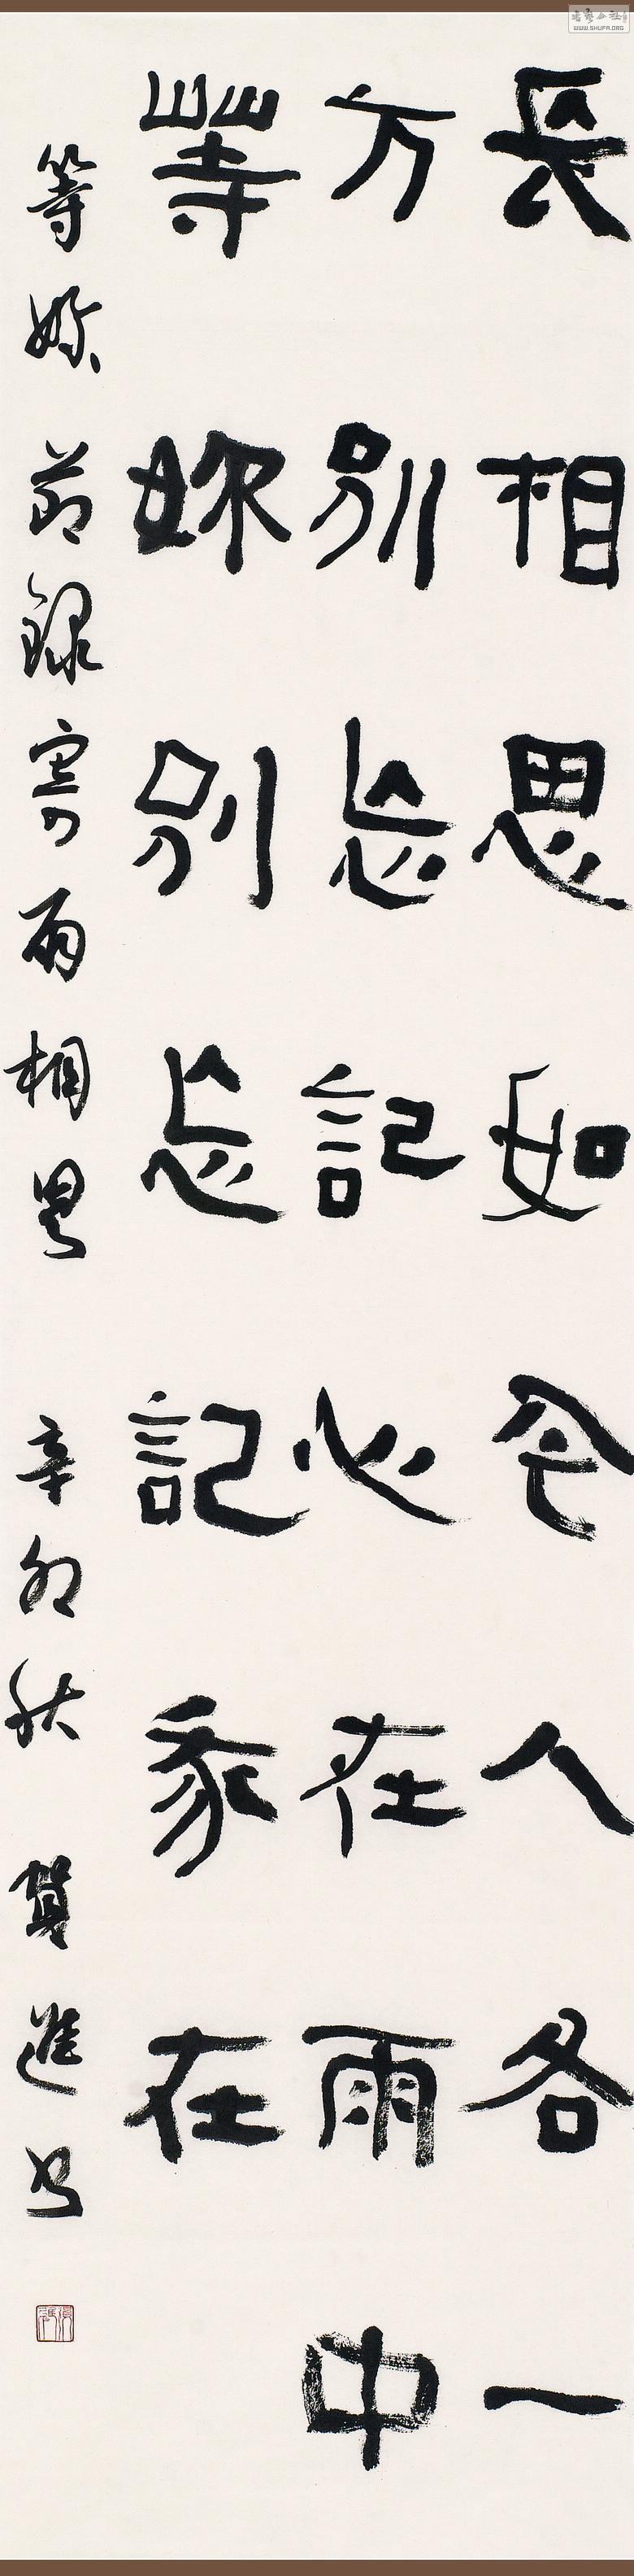 長相思如今人各一
方別忘記心在雨中
等妳別忘記我在
等妳 節錄寄雨相思 辛卯秋 賀進書
WWW.SHUFA.ORG